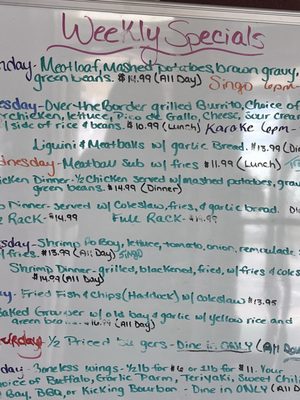 Weekly Specials
nday - Meatloaf, Mashed potatoes, brown gravy,
green beans. $14.99 (All Day) Singo 6pm-
esday - Over the Border grilled Burrito, Choice of
r chicken, lettuce, Pico de Gallo, Cheese, sour cream
/ side of rice & beans. $10.99 (Lunch) Karaoke 6pm-
Liguini & Meatballs w/ garlic Bread. $13.99 (Di
dnesday - Meatball Sub w/ fries $11.99 (Lunch)
hicken Dinner - ½ Chicken served w/ mashed potatoes, grav
green beans. $14.99 (Dinner)
b Dinner - served w/ Coleslaw, fries, & garlic bread. Di
Rack - $14.99 Full Rack -
sday - Shrimp Po Boy, lettuce, tomato, onion, remoulade s
/ fries. $13.99 (All Day) Singo
Shrimp Dinner - grilled, blackened, fried, w/ fries & coles
$14.99 (All Day)
ay - Fried Fish & Chips (Haddock) w/ coleslaw $13.95
aked Grouper w/ old bay & garlic w/ yellow rice and
green bea (All Day)
turday - ½ Priced Burgers - Dine in ONLY (All Da
day - Boneless wings - ½ lb for $6 or 1 lb for $11. Your
hoice of Buffalo, Garlic Parm, Teriyaki, Sweet Chili
Bay, BBQ, or Kicking Bourbon - Dine in ONLY (All D